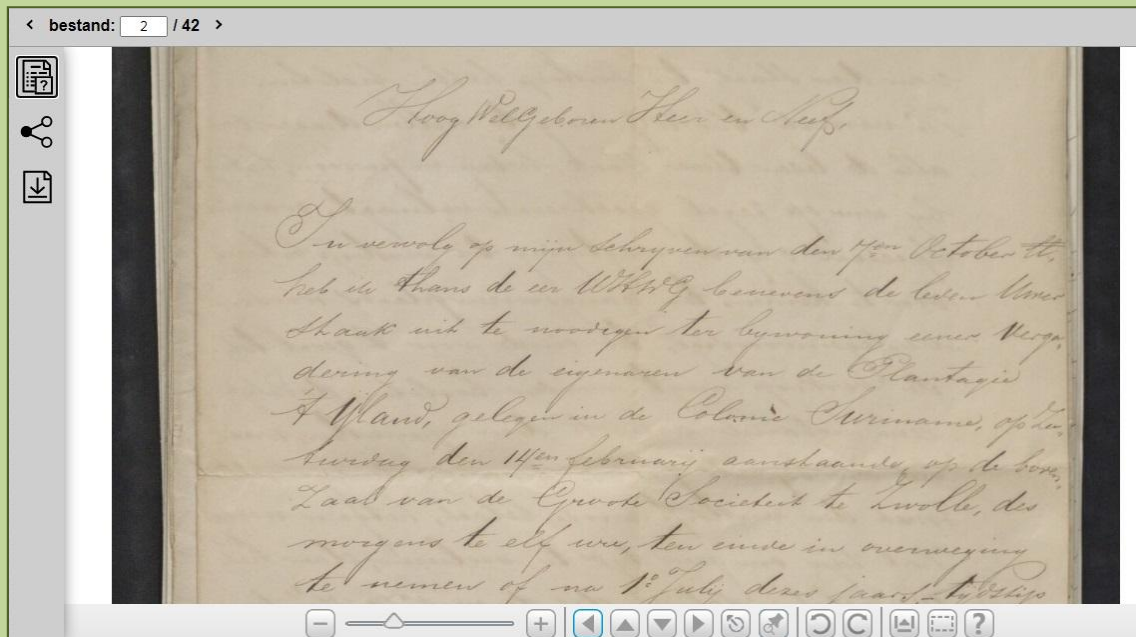 bestand: 2 / 42
Hoog WelGeboren Heer en Neef,
In vervolg op mijn schryven van den 7en October ll.
heb ik thans de eer UWHWG benevens de leden Uwer
staak uit te noodigen ter bywoning eener verga-
dering van de eigenaren van de Plantagie
't Yland, gelegen in de Colonie Suriname, op Za-
turdag den 14en februarij aanstaande, op de boven-
Zaal van de Groote Societeit te Zwolle, des
morgens te elf ure, ten einde in overweging
te nemen of na 1o Julij dezes jaars - tijdstip